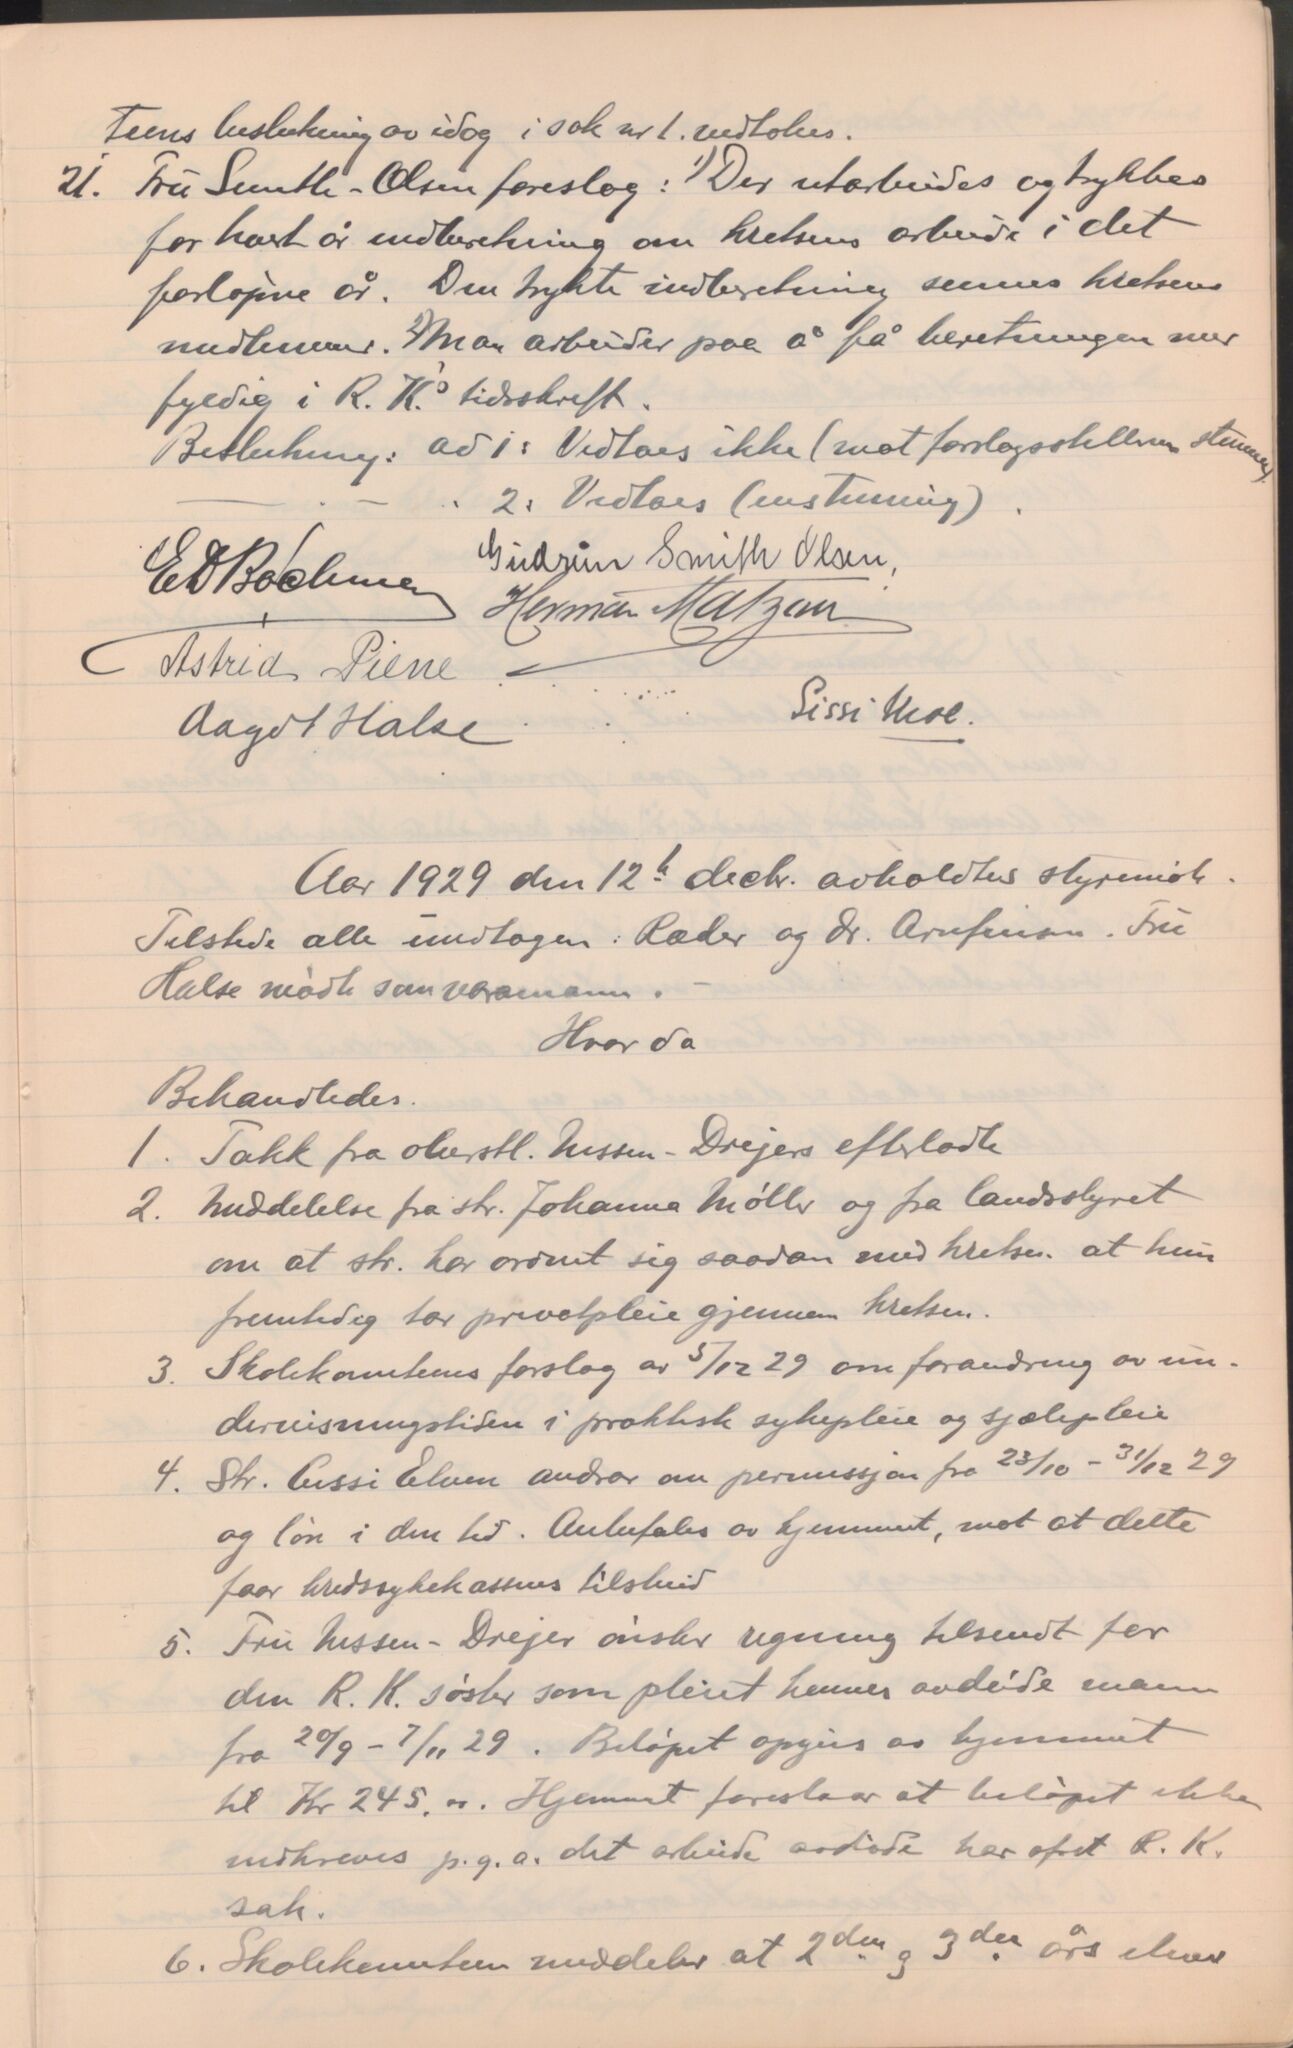 teens beslutning av idag i sak nr 1. vedtokes.
21. Frü Smith-Olsen foreslog: 1) Der utarbeides og trykkes
for hvert år indberetning om kretsens arbeide i det
forløpne år. Den trykte indberetning sennes kretsens
medlemmer. 2) Man arbeider paa å få beretningen mer
fyldig i R. K.'s tidsskrift.
Beslutning: ad 1: Vedtaes ikke (mot forslagsstillerens stemme)
— . — . 2: Vedtaes (enstemmig).
Gudrun Smith Olsen,
Herman Matzau
Astrid Piene
Sissi Moe.
Aagot Halse
Aar 1929 den 12te decbr. avholdtes styremöte.
Tilstede alle undtagen: Ræder og dr. Arnfinsen. Frü
Halse mödte som varamann. —
Hvor da
Behandledes.
1. Takk fra oberstl. Nissen-Drejers efterladte
2. Meddelelse fra str. Johanna Möller og fra landsstyret
om at str. har ordnet sig saadan med kretsen at hun
fremtidig tar privatpleie gjennem kretsen.
3. Skolekomiteens forslag av 5/12 29 om forandring av un-
dervisningstiden i praktisk sykepleie og sjælepleie
4. Str. Cissi Elven andrar om permissjon fra 23/10 - 31/12 29
og lön i den tid. Anbefales av hjemmet, mot at dette
faar kredssykekassens tilskud
5. Frü Nissen-Drejer önsker regning tilsendt for
den R. K. söster som pleiet hennes avdöde mann
fra 20/9 - 7/11 29. Belöpet opgives av hjemmet
til Kr 245,00. Hjemmet foreslaar at belöpet ikke
indkreves p.g.a. det arbeide avdöde har ofret R. K.
sak.
6. Skolekomiteen meddeler at 2den og 3dje års elever